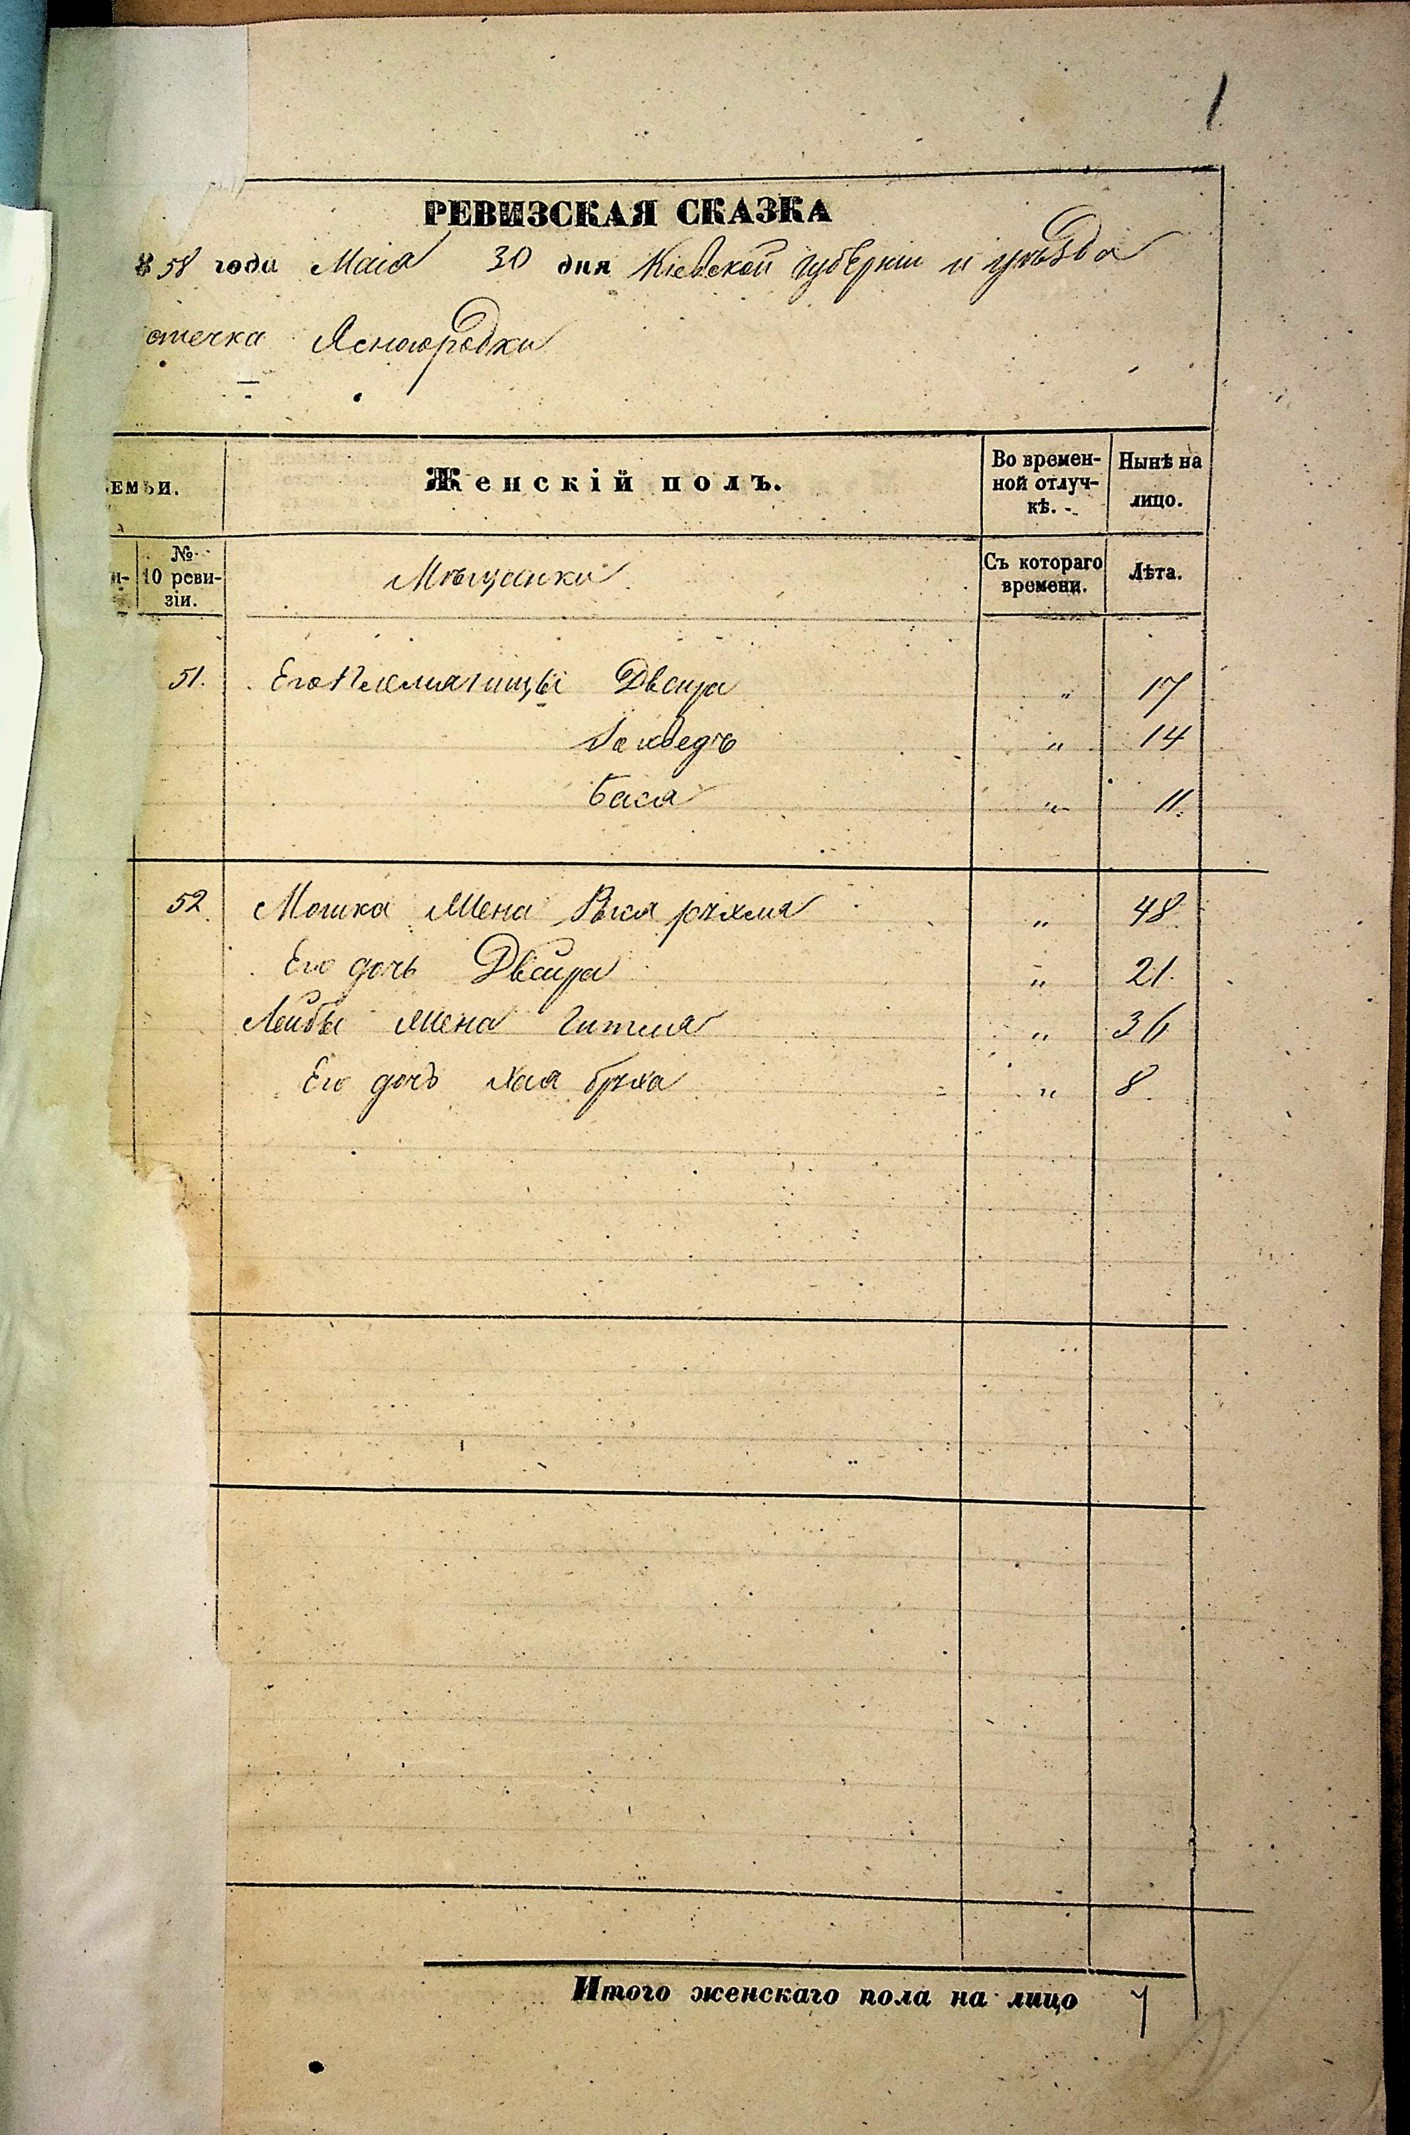 1
РЕВИЗСКАЯ СКАЗКА
858 года Маія 30 дня Кіевской губерніи и уѣзда
стечка Ясногородки
ЕМЬИ.
Женскій полъ.
Во времен-
ной отлуч-
кѣ.
Нынѣ на
лицо.
и-
№
10 реви-
зіи.
Мѣщанки
Съ котораго
времени.
Лѣта.
51. Его Племянницы Двейра " 17
" 14
Бася " 11.
52. Мошка жена Рухля " 48
Его дочь Двейра " 21.
Лейбы жена Гитля " 36
Его дочь Хая Бруха " 8.
Итого женскаго пола на лицо 7